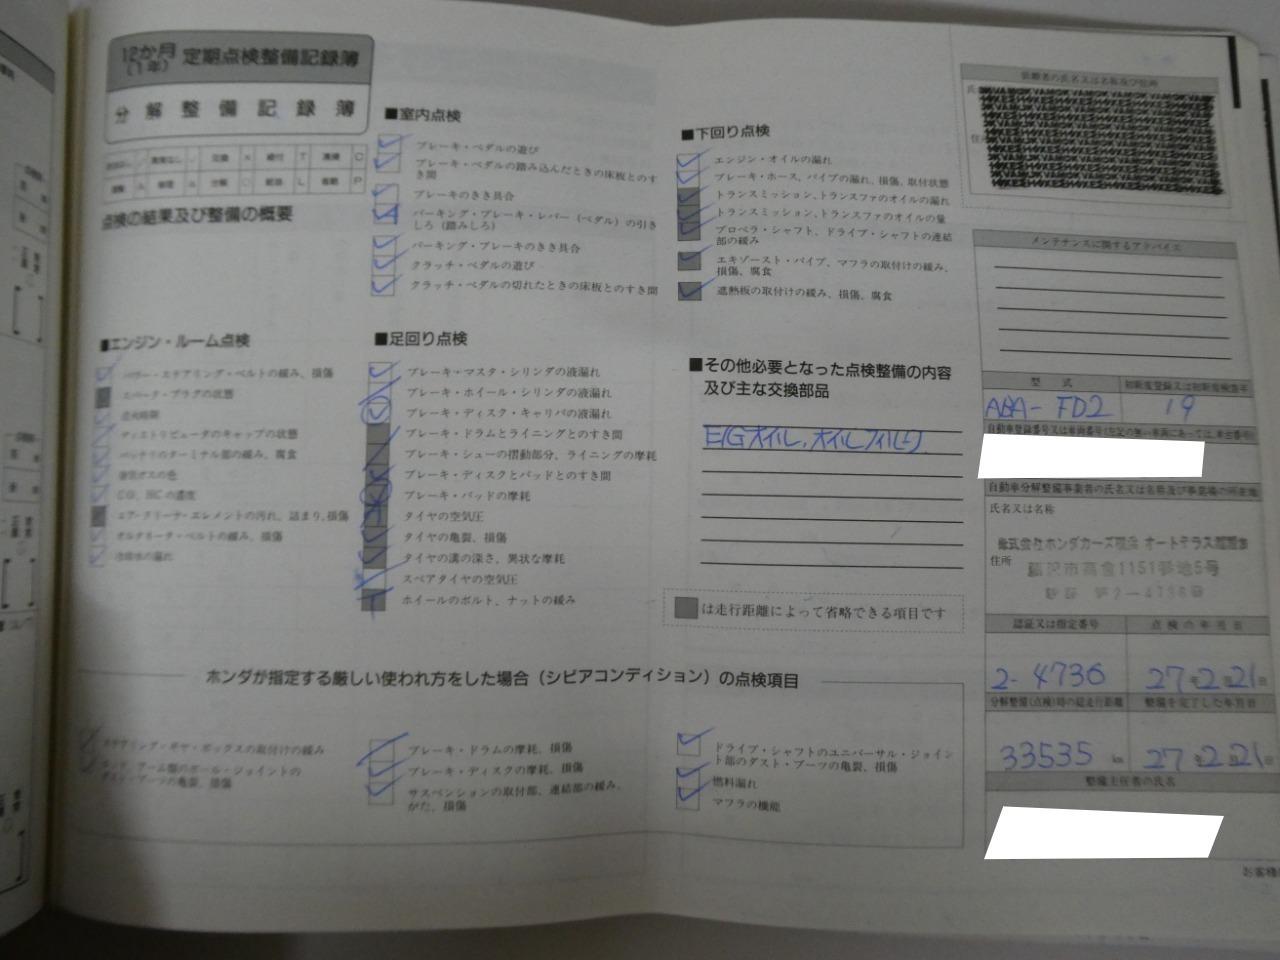 12か月
(1年)
定期点検整備記録簿
分解整備記録簿
点検の結果及び整備の概要
■室内点検
ブレーキ・ペダルの遊び
ブレーキ・ペダルの踏み込んだときの床板とのす
き間
ブレーキのきき具合
パーキング・ブレーキ・レバー(ペダル)の引き
しろ(踏みしろ)
パーキング・ブレーキのきき具合
クラッチ・ペダルの遊び
クラッチ・ペダルの切れたときの床板とのすき間
■エンジン・ルーム点検
パワー・ステアリング・ベルトの緩み、損傷
スパーク・プラグの状態
点火時期
ディストリビュータのキャップの状態
バッテリのターミナル部の緩み、腐食
排気ガスの色
CO、HCの濃度
エア・クリーナ・エレメントの汚れ、詰まり、損傷
オルタネータ・ベルトの緩み、損傷
冷却水の漏れ
■足回り点検
ブレーキ・マスタ・シリンダの液漏れ
ブレーキ・ホイール・シリンダの液漏れ
ブレーキ・ディスク・キャリパの液漏れ
ブレーキ・ドラムとライニングとのすき間
ブレーキ・シューの摺動部分、ライニングの摩耗
ブレーキ・ディスクとパッドとのすき間
ブレーキ・パッドの摩耗
タイヤの空気圧
タイヤの亀裂、損傷
タイヤの溝の深さ、異状な摩耗
スペアタイヤの空気圧
ホイールのボルト、ナットの緩み
■下回り点検
エンジン・オイルの漏れ
ブレーキ・ホース、パイプの漏れ、損傷、取付状態
トランスミッション、トランスファのオイルの漏れ
トランスミッション、トランスファのオイルの量
プロペラ・シャフト、ドライブ・シャフトの連結
部の緩み
エキゾースト・パイプ、マフラの取付けの緩み、
損傷、腐食
遮熱板の取付けの緩み、損傷、腐食
■その他必要となった点検整備の内容
及び主な交換部品
E/Gオイル、オイルフィルタ
は走行距離によって省略できる項目です
ホンダが指定する厳しい使われ方をした場合(シビアコンディション)の点検項目
ステアリング・ギヤ・ボックスの取付けの緩み
ロッド、アーム類のボール・ジョイントの
ダスト・ブーツの亀裂、損傷
ブレーキ・ドラムの摩耗、損傷
ブレーキ・ディスクの摩耗、損傷
サスペンションの取付部、連結部の緩み、
がた、損傷
ドライブ・シャフトのユニバーサル・ジョイン
ト部のダスト・ブーツの亀裂、損傷
燃料漏れ
マフラの機能
依頼者の氏名又は名称及び住所
メンテナンスに関するアドバイス
型式
初年度登録又は初年度検査年
ABA-FD2
19
自動車分解整備事業者の氏名又は名称及び事業場の所在地
氏名又は名称
住所
藤沢市高倉1151番地5号
認証又は指定番号
点検の年月日
2-4736
27年2月21日
分解整備(点検)時の総走行距離
整備を完了した年月日
33535 km
27年2月21日
整備主任者の氏名